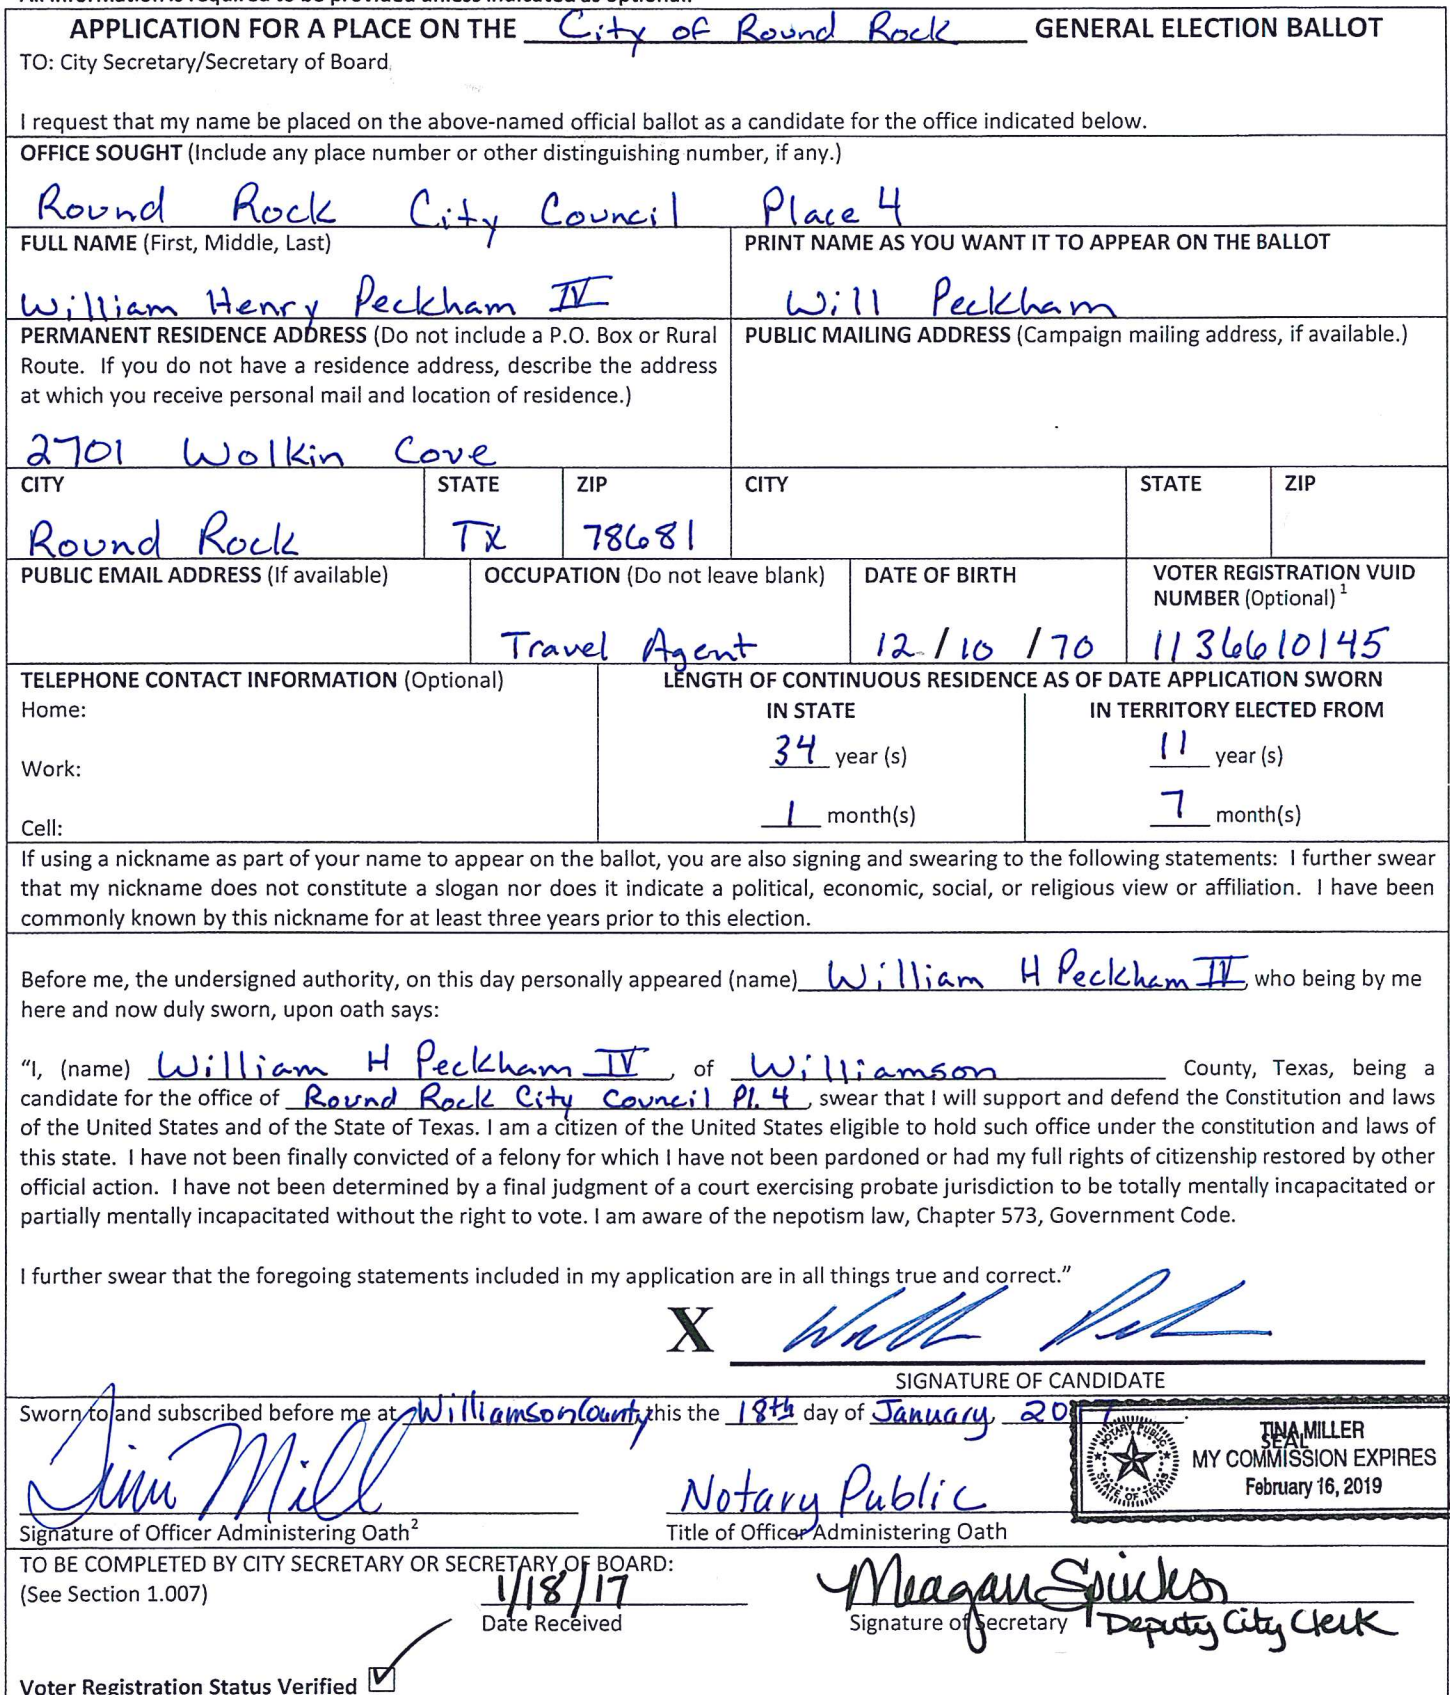 APPLICATION FOR A PLACE ON THE City of Round Rock GENERAL ELECTION BALLOT
TO: City Secretary/Secretary of Board
I request that my name be placed on the above-named official ballot as a candidate for the office indicated below.
OFFICE SOUGHT (Include any place number or other distinguishing number, if any.)
Round Rock City Council Place 4
FULL NAME (First, Middle, Last)
William Henry Peckham IV
PRINT NAME AS YOU WANT IT TO APPEAR ON THE BALLOT
Will Peckham
PERMANENT RESIDENCE ADDRESS (Do not include a P.O. Box or Rural
Route. If you do not have a residence address, describe the address
at which you receive personal mail and location of residence.)
2701 Wolkin Cove
PUBLIC MAILING ADDRESS (Campaign mailing address, if available.)
CITY
Round Rock
STATE
TX
ZIP
78681
CITY
STATE
ZIP
PUBLIC EMAIL ADDRESS (If available)
OCCUPATION (Do not leave blank)
Travel Agent
DATE OF BIRTH
12 / 10 / 70
VOTER REGISTRATION VUID
NUMBER (Optional) 1
1136610145
TELEPHONE CONTACT INFORMATION (Optional)
Home:
Work:
Cell:
LENGTH OF CONTINUOUS RESIDENCE AS OF DATE APPLICATION SWORN
IN STATE
34 year (s)
1 month(s)
IN TERRITORY ELECTED FROM
11 year (s)
7 month(s)
If using a nickname as part of your name to appear on the ballot, you are also signing and swearing to the following statements: I further swear
that my nickname does not constitute a slogan nor does it indicate a political, economic, social, or religious view or affiliation. I have been
commonly known by this nickname for at least three years prior to this election.
Before me, the undersigned authority, on this day personally appeared (name) William H Peckham IV, who being by me
here and now duly sworn, upon oath says:
"I, (name) William H Peckham IV, of Williamson County, Texas, being a
candidate for the office of Round Rock City Council Pl. 4, swear that I will support and defend the Constitution and laws
of the United States and of the State of Texas. I am a citizen of the United States eligible to hold such office under the constitution and laws of
this state. I have not been finally convicted of a felony for which I have not been pardoned or had my full rights of citizenship restored by other
official action. I have not been determined by a final judgment of a court exercising probate jurisdiction to be totally mentally incapacitated or
partially mentally incapacitated without the right to vote. I am aware of the nepotism law, Chapter 573, Government Code.
I further swear that the foregoing statements included in my application are in all things true and correct."
X
SIGNATURE OF CANDIDATE
Sworn to and subscribed before me at Williamson County this the 18th day of January, 20
NOTARY PUBLIC
STATE OF TEXAS
TINA MILLER
SEAL
MY COMMISSION EXPIRES
February 16, 2019
Notary Public
Signature of Officer Administering Oath2
Title of Officer Administering Oath
TO BE COMPLETED BY CITY SECRETARY OR SECRETARY OF BOARD:
(See Section 1.007)
1/18/17
Date Received
Meagan Spinks
Signature of Secretary Deputy City Clerk
Voter Registration Status Verified